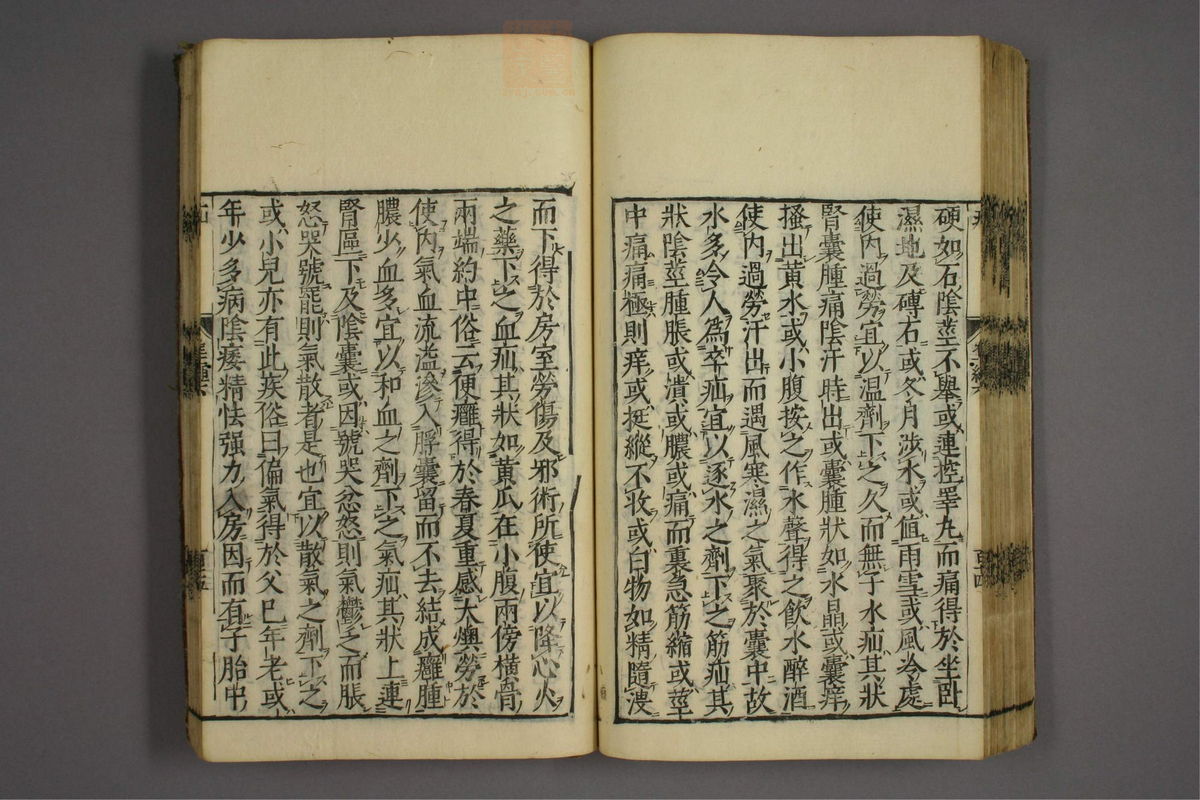 硬如石陰莖不舉或連控睪丸而痛得於坐卧
濕地及磚石或冬月涉水或値雨雪或風冷處
使内過勞宜以温劑下之久而無子水疝其狀
腎囊腫痛陰汗時出或囊腫狀如水晶或囊痒
搔出黄水或小腹按之作水聲得之飲水醉酒
使内過勞汗出而遇風寒濕之氣聚於囊中故
水多令人爲卒疝宜以逐水之劑下之筋疝其
狀陰莖腫脹或潰或膿或痛而裏急筋縮或莖
中痛痛極則痒或挺縱不收或白物如精隨溲
而下得於房室勞傷及邪術所使宜以降心火
之藥下之血疝其狀如黄瓜在小腹兩傍横骨
兩端約中俗云便癰得於春夏重感大燠勞於
使内氣血流溢滲入脬囊留而不去結成癰腫
膿少血多宜以和血之劑下之氣疝其狀上連
腎區下及陰囊或因號哭忿怒則氣鬱之而脹
怒哭號罷則氣散者是也宜以散氣之劑下之
或小兒亦有此疾俗曰偏氣得於父已年老或
年少多病陰痿精怯强力入房因而有子胎中